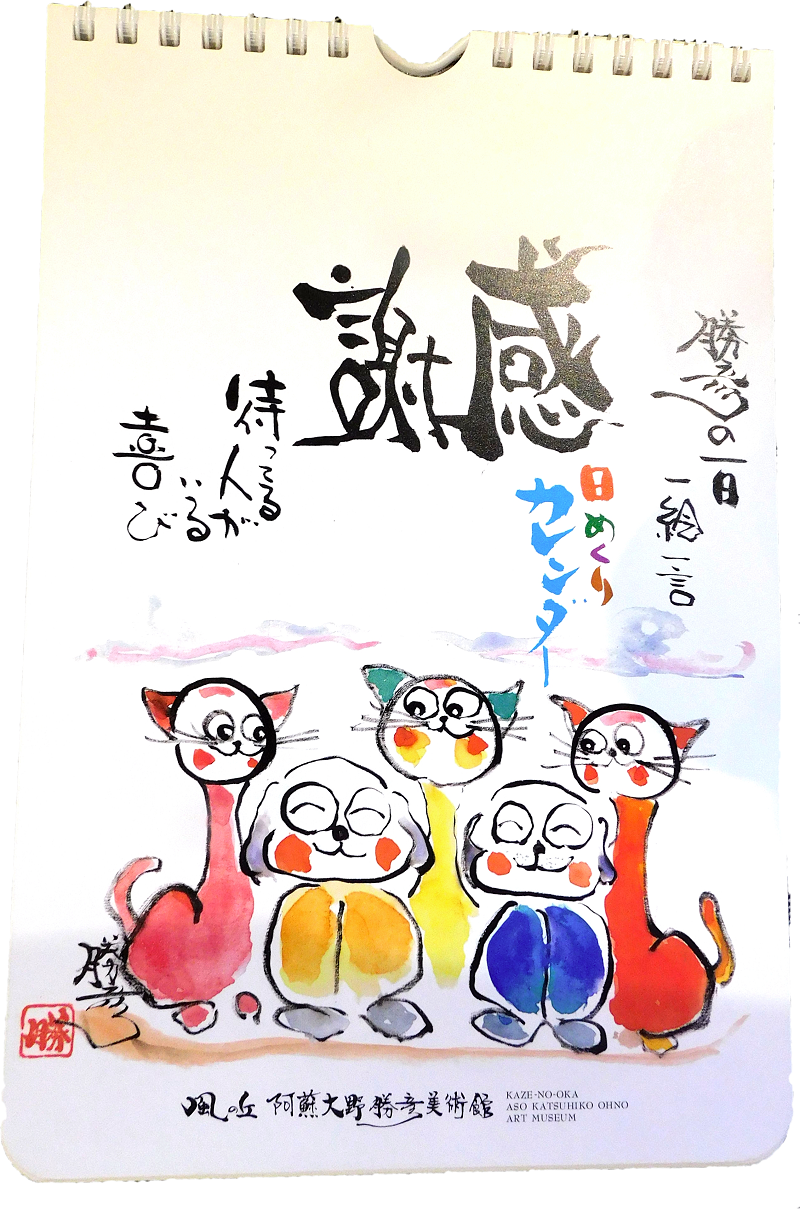 勝彦の一日
一絵一言
感謝
日めくり
カレンダー
待ってる
人が
いる
喜び
勝彦
勝
風の丘 阿蘇大野勝彦美術館
KAZE-NO-OKA
ASO KATSUHIKO OHNO
ART MUSEUM